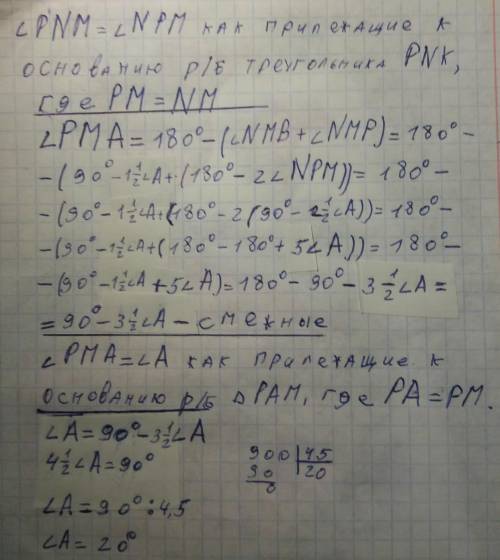 ∠PNM = ∠NPM как прилежащие к
основанию р/б треугольника PNK,
где PM = NM
∠PMA = 180° - (∠NMB + ∠NMP) = 180° -
- (90° - 1½∠A + (180° - 2∠NPM)) = 180° -
- (90° - 1½∠A + (180° - 2(90° - 2½∠A)) = 180° -
- (90° - 1½∠A + (180° - 180° + 5∠A)) = 180° -
- (90° - 1½∠A + 5∠A) = 180° - 90° - 3½∠A =
= 90° - 3½∠A - смежные
∠PMA = ∠A как прилежащие к
основанию р/б △PAM, где PA = PM.
∠A = 90° - 3½∠A
4½∠A = 90°
∠A = 90° : 4,5
∠A = 20°
900 | 45
90 | 20
0